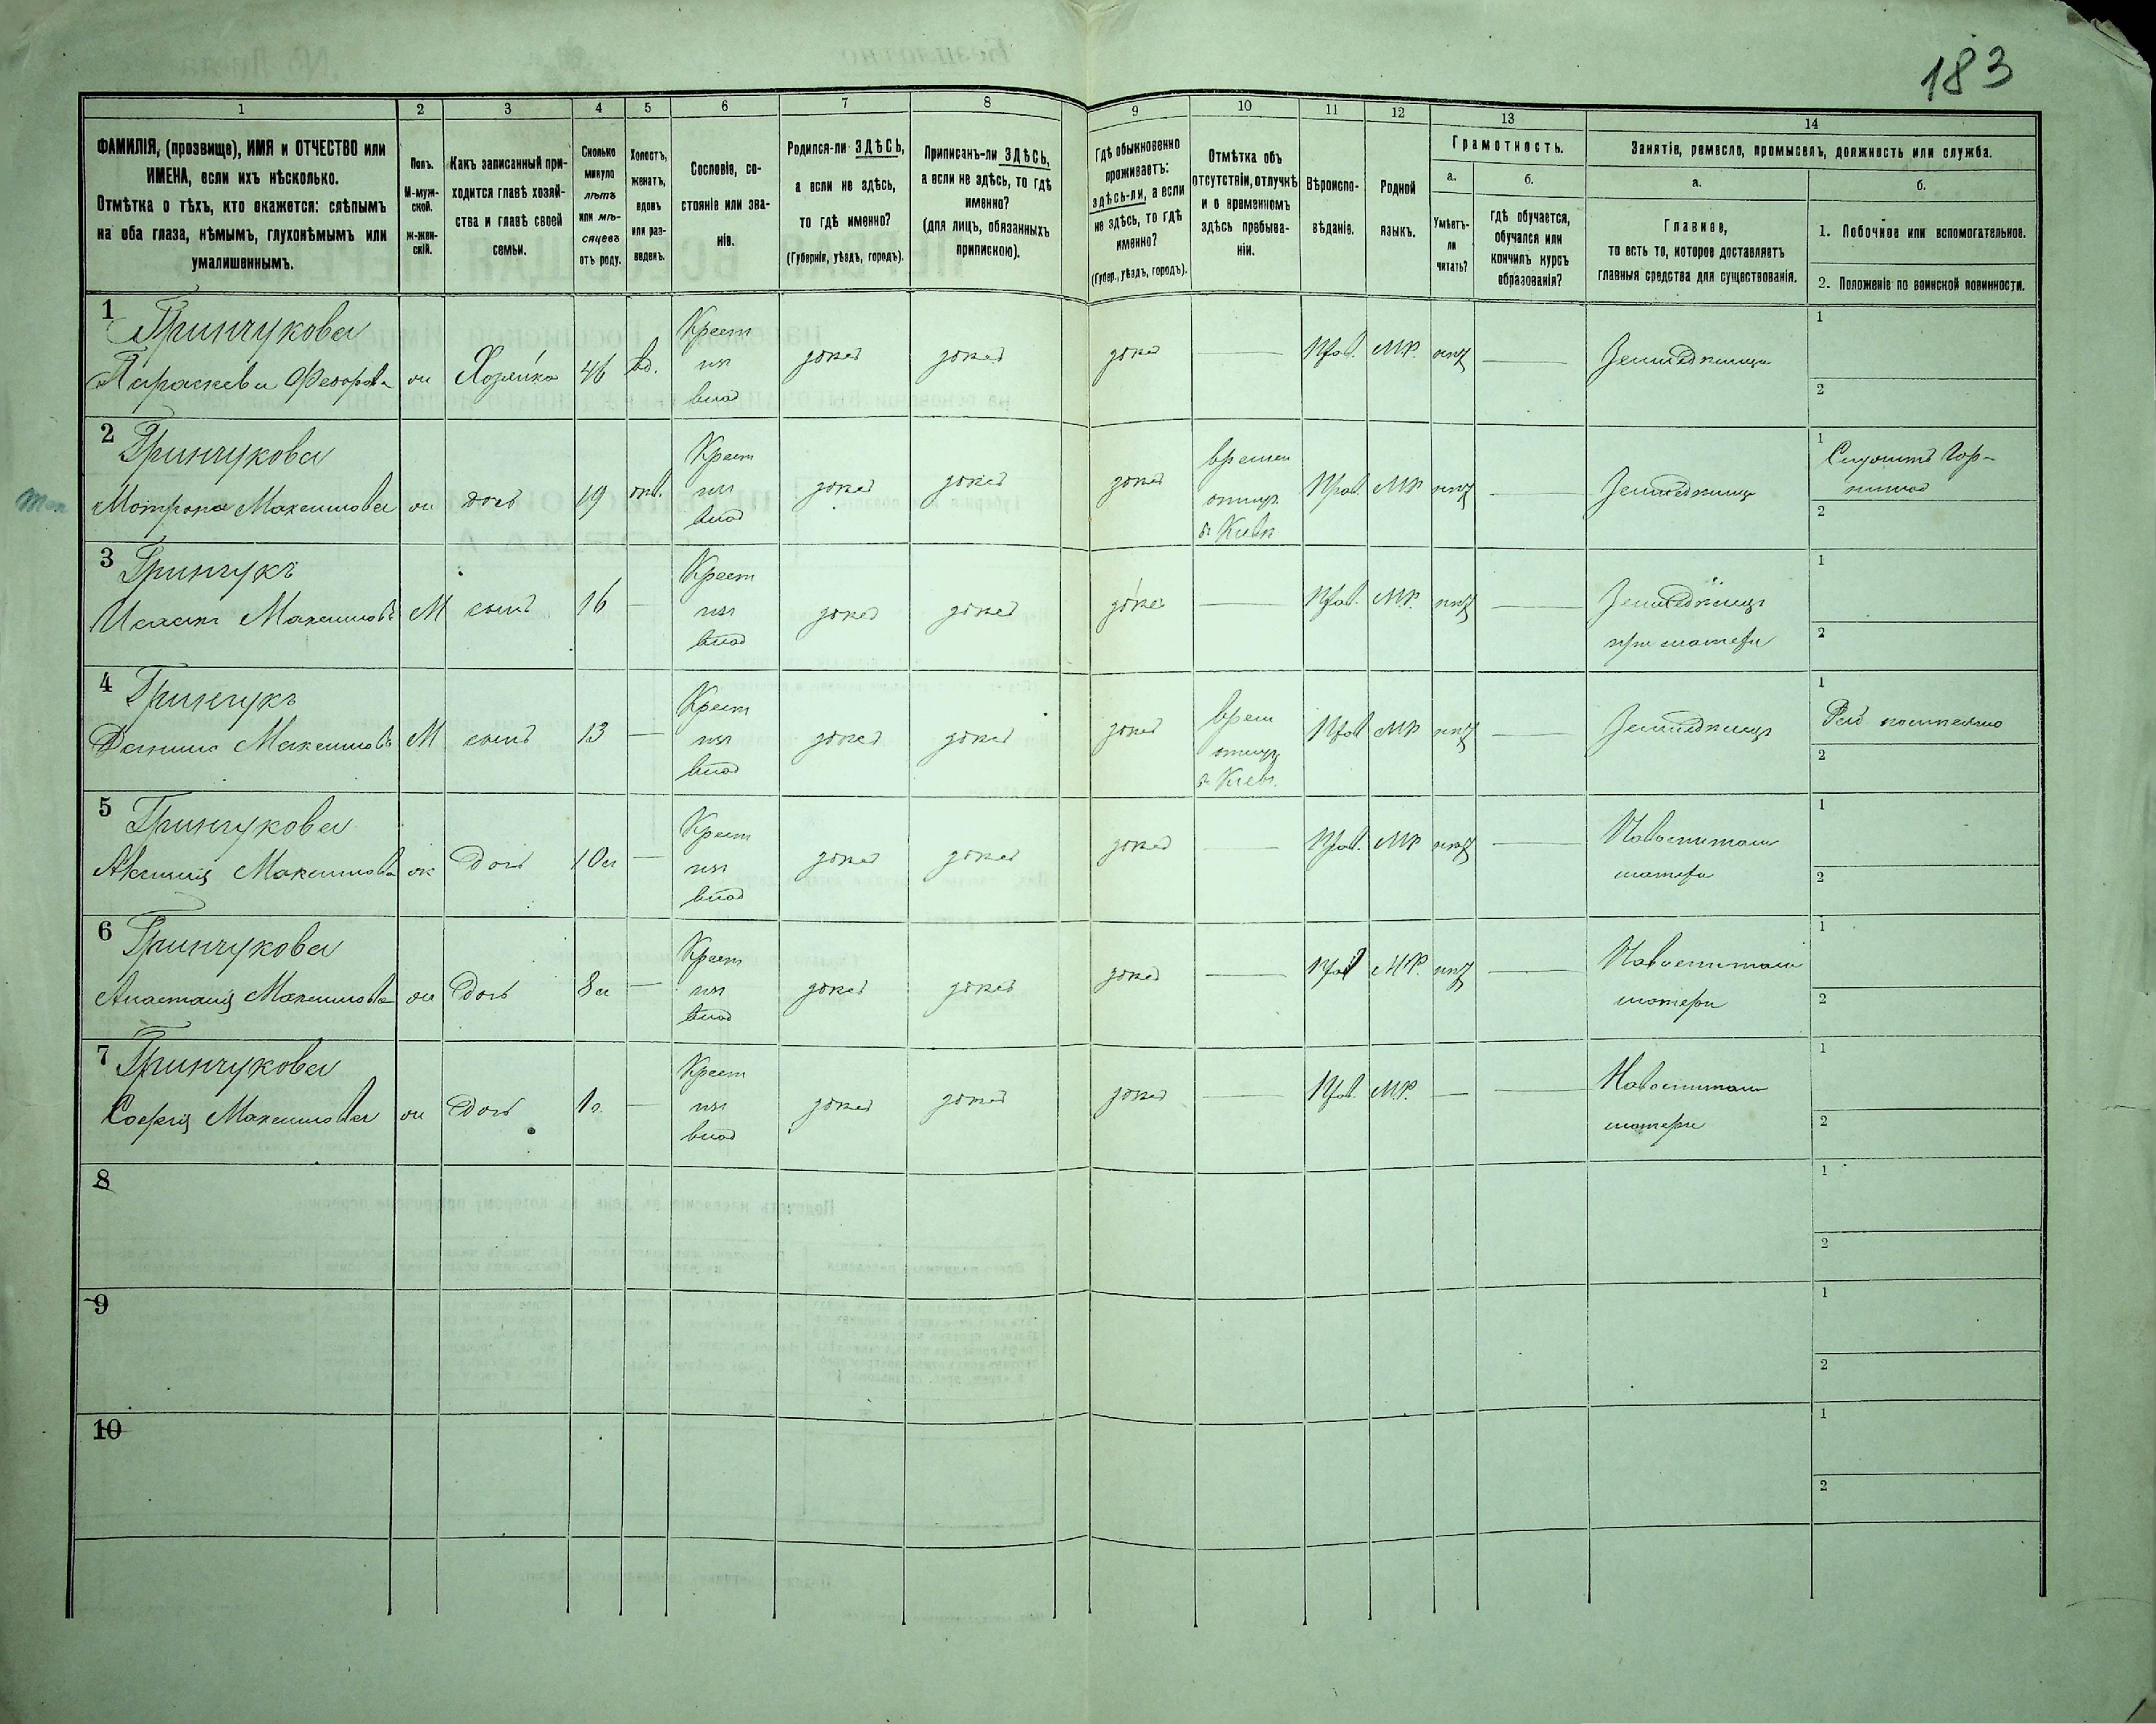 183
1
2
3
4
5
6
7
8
9
10
11
12
13
14
ФАМИЛІЯ, (прозвище), ИМЯ и ОТЧЕСТВО или
ИМЕНА, если ихъ нѣсколько.
Отмѣтка о тѣхъ, кто окажется: слѣпымъ
на оба глаза, нѣмымъ, глухонѣмымъ или
умалишеннымъ.
Полъ.
М-муж-
ской.
Ж-жен-
скій.
Какъ записанный при-
ходится главѣ хозяй-
ства и главѣ своей
семьи.
Сколько
минуло
лѣтъ
или мѣ-
сяцевъ
отъ роду.
Холостъ,
женатъ,
вдовъ
или раз-
веденъ.
Сословіе, со-
стояніе или зва-
ніе.
Родился-ли ЗДѢСЬ,
а если не здѣсь,
то гдѣ именно?
(Губернія, уѣздъ, городъ).
Приписанъ-ли ЗДѢСЬ,
а если не здѣсь, то гдѣ
именно?
(для лицъ, обязанныхъ
припискою).
Гдѣ обыкновенно
проживаетъ:
здѣсь-ли, а если
не здѣсь, то гдѣ
именно?
(Губер., уѣздъ, городъ).
Отмѣтка объ
отсутствіи, отлучкѣ
и о временномъ
здѣсь пребыва-
ніи.
Вѣроиспо-
вѣданіе.
Родной
языкъ.
Грамотность.
а.
Умѣетъ-
ли
читать?
б.
гдѣ обучается,
обучался или
кончилъ курсъ
образованія?
Занятіе, ремесло, промыселъ, должность или служба.
а.
Главное,
то есть то, которое доставляетъ
главныя средства для существованія.
б.
1. Побочное или вспомогательное.
2. Положеніе по воинской повинности.
1
Гринчукова
Параскева Федорова
Хозяйка
46
вд.
Крест
здесь
здесь
здесь
Прав.
МР.
нѣт
1
2
2
Гринчукова
Мотрона Максимова
дочь
19
Крест
здесь
здесь
здесь
времен
отлуч
в Киев
Прав.
МР
нѣт
1
Служитъ Гор-
ничной
2
3
Гринчукъ
Максимовъ
М
сынъ
16
Крест
здесь
здесь
здесь
Прав.
МР.
нѣт
при матери
1
2
4
Гринчукъ
Данило Максимовъ
М
сынъ
13
Крест
здесь
здесь
здесь
врем
отлуч
в Киев.
Прав
МР
нѣт
1
2
5
Гринчукова
Аксинія Максимова
Дочь
10
Крест
здесь
здесь
здесь
Прав.
МР
нѣт
матери
1
2
6
Гринчукова
Анастасія Максимова
Дочь
8
Крест
здесь
здесь
здесь
Прав
МР.
нѣт
матери
1
2
7
Гринчукова
Софія Максимова
Дочь
1
Крест
здесь
здесь
здесь
Прав.
МР.
матери
1
2
8
1
2
9
1
2
10
1
2